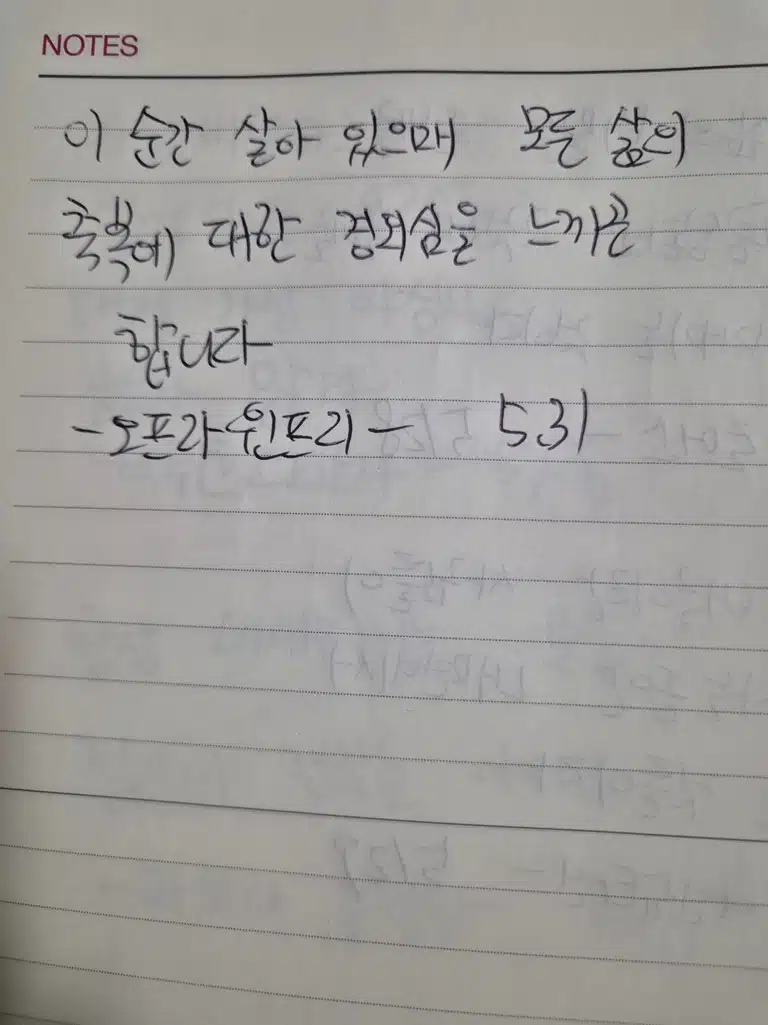 NOTES
이 순간 살아 있으매 모든 삶의
축복에 대한 경외심을 느끼곤
합니다
- 오프라 윈프리 - 531